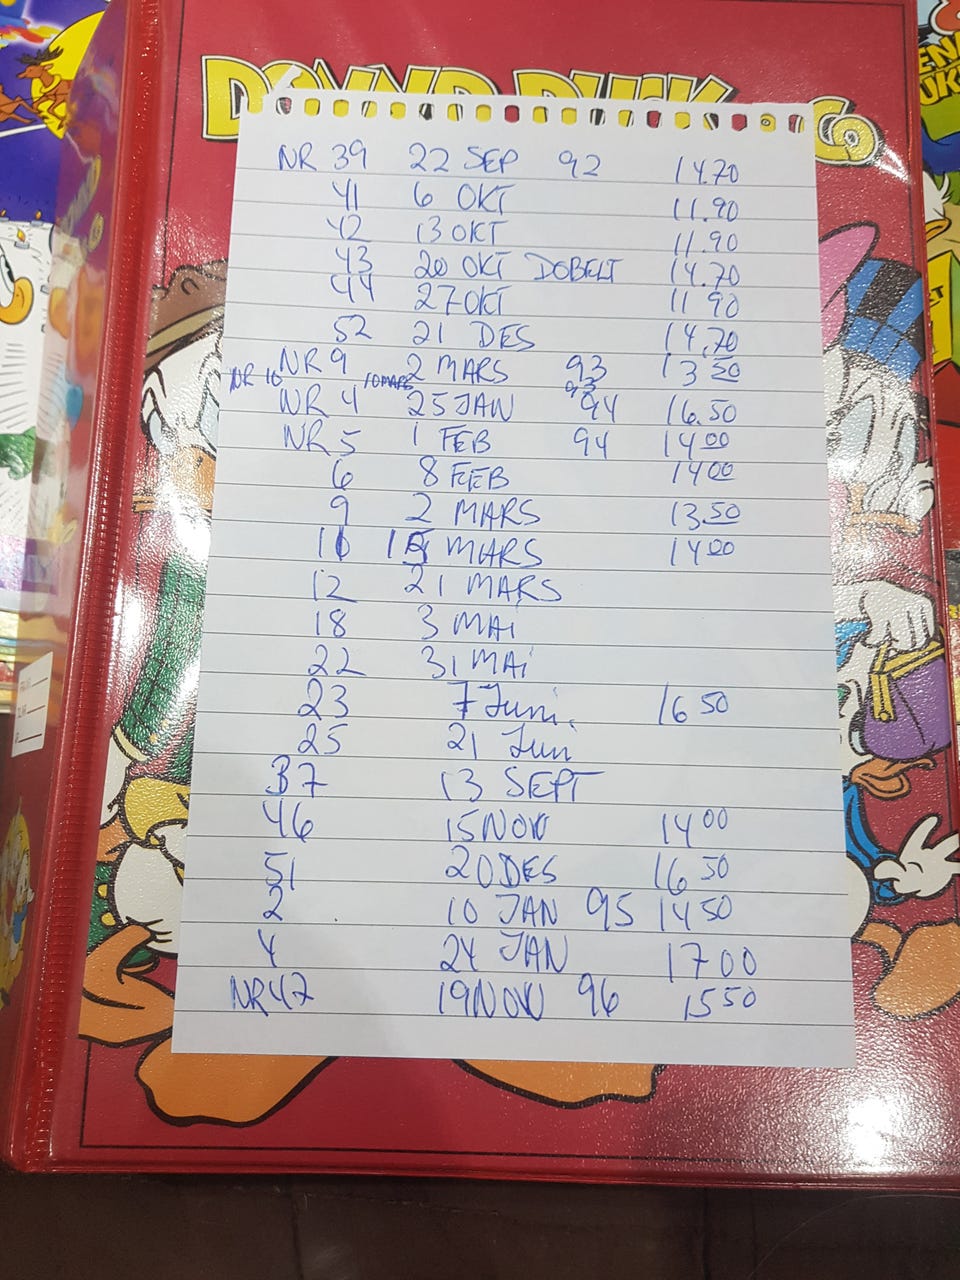 DONALD DUCK & CO
NR 39 22 SEP 92 14.70
41 6 OKT 11.90
42 13 OKT 11.90
43 20 OKT DOBELT 14.70
44 27 OKT 11 90
52 21 DES 14.70
NR 9 2 MARS 93 13 50
NR 10 10 MARS 93
NR 4 25 JAN 94 16.50
NR 5 1 FEB 94 14 00
6 8 FEB 14 00
9 2 MARS 13.50
11 15 MARS 14 00
12 21 MARS
18 3 MAi
22 31 MAi
23 7 Juni. 16 50
25 21 Juni
37 13 SEPT
46 15 NOV 14 00
51 20 DES 16 50
2 10 JAN 95 14 50
4 24 JAN 17 00
NR 47 19 NOV 96 15 50